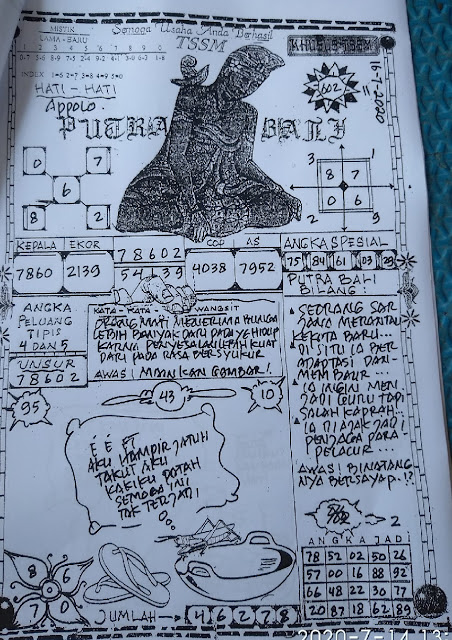 Semoga Usaha Anda Berhasil
TSSM
MISTIK
LAMA - BARU
1 2 3 4 5 6 7 8 9 0
INDEX 1=6 2=7 3=8 4=9 5=0
HATI - HATI
Appolo.
KHUSUS TSSM
602
PUTRA BALI
0 7
6
8 2
3 1
8 7
0 6
2 9
KEPALA EKOR
7860 2139
78602
54139
COP AS
4038 7952
ANGKA SPESIAL
75 84 61 03 29
PUTRA BALI
BILANG :
ANGKA
PELUANG
TIPIS
4 DAN 5
UNSUR
78602
KATA - KATA WANGSIT
ORANG MATI MENERIMA BUNGA
LEBIH BANYAK DARI PADA YG HIDUP
KARNA PENYESALAN LEBIH KUAT
DARI PADA RASA BERSYUKUR
AWAS! MAINKAN GAMBAR!.
SEORANG SAR
JANA MERANTAU
KEKOTA BARU..
DI SITU IA BER
ADAPTASI DAN
MEMBAUR...
IA INGIN MEN
JADI GURU TAPI
SALAH KAPRAH...
IA DI AJAK JADI
PENJAGA PARA
PELACUR...
AWAS! BINATANG
NYA BERSAYAP..!?
95
43
10
AKU HAMPIR JATUH
TAKUT AKU
KAKIKU PATAH
SEMOGA INI
TAK TERJADI
2
ANGKA JADI
78 52 02 50 26
57 00 16 88 92
66 48 22 30 77
20 87 18 62 89
8 6
7 0
JUMLAH 4 6 2 7 8